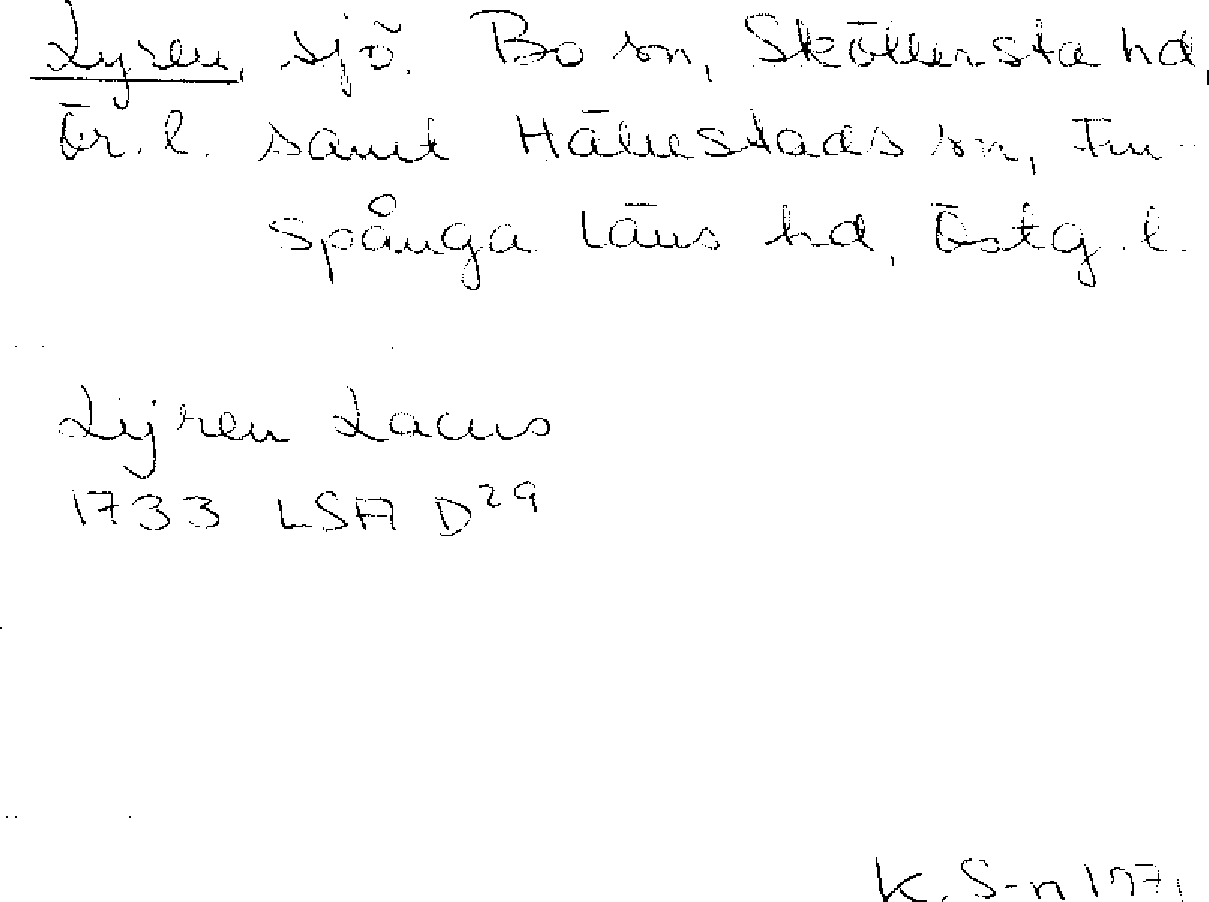 Lyren, sjö. Bo sn, Sköllersta hd,
Ör. l. samt Hällestads sn, Fin-
spånga läns hd, Östg. l.
Lijren Lacus
1733 LSA D29
K. S-n 1971